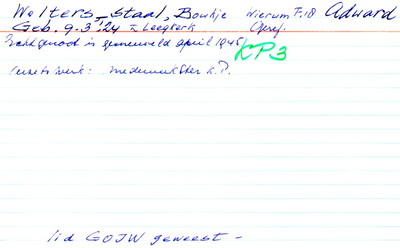 Wolters-Staal, Boukje Wierum T.18 Adward
Geb. 9-3-'24 te Leegkerk Geref.
Echtgenoot is gesneuveld april 1945 KP3
Verzetswerk: medewerkster K.P.
lid GOIW geweest -